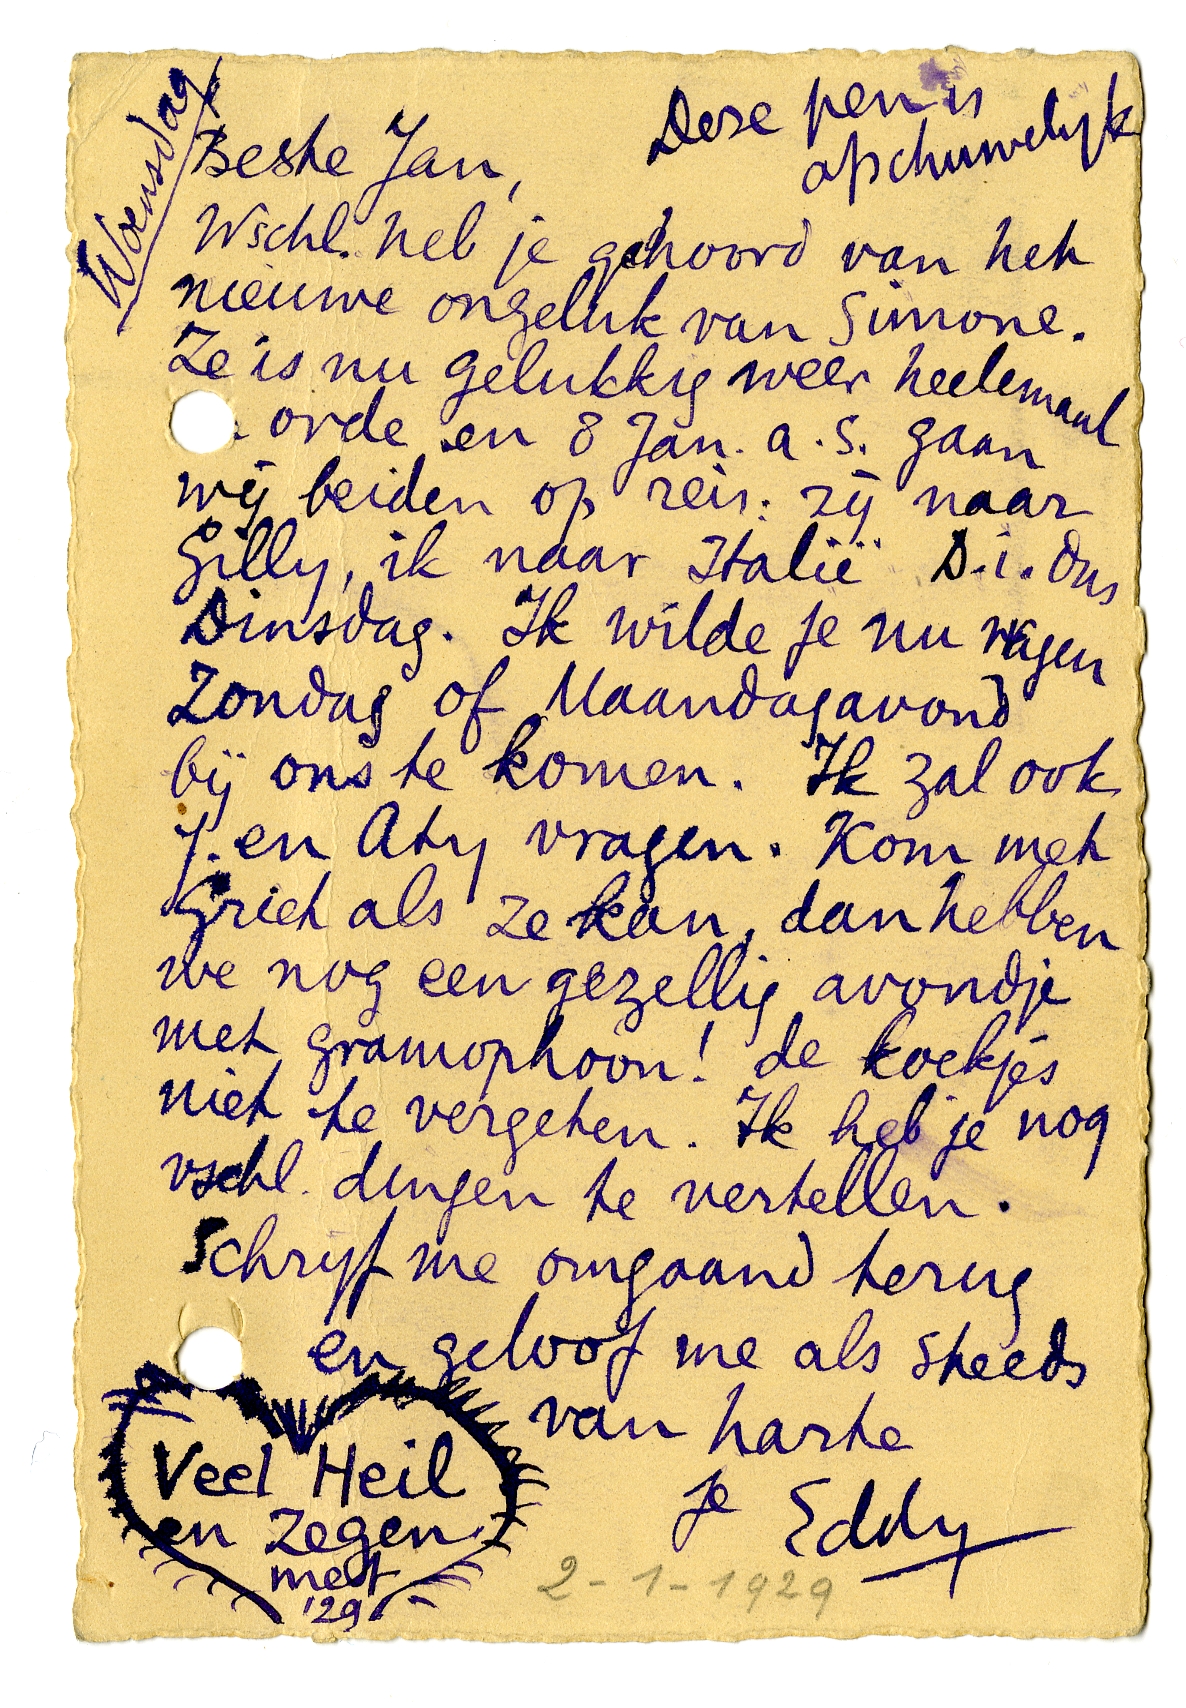 Woensdag
Deze pen is
afschuwelijk
Beste Jan,
Wschl. heb je gehoord van het
nieuwe ongeluk van Simone.
Ze is nu gelukkig weer heelemaal
orde en 8 Jan. a.s. gaan
wij beiden op reis: zij naar
Gilly, ik naar Italië D.i. dus
Dinsdag. Ik wilde je nu vragen
Zondag of Maandagavond
bij ons te komen. Ik zal ook
J. en Aty vragen. Kom met
Griet als ze kan, dan hebben
we nog een gezellig avondje
met gramophoon! de koekjes
niet te vergeten. Ik heb je nog
vschl. dingen te vertellen.
Schrijf me omgaand terug
en geloof me als steeds
van harte
je Eddy
Veel Heil
en Zegen
met
'29
2-1-1929